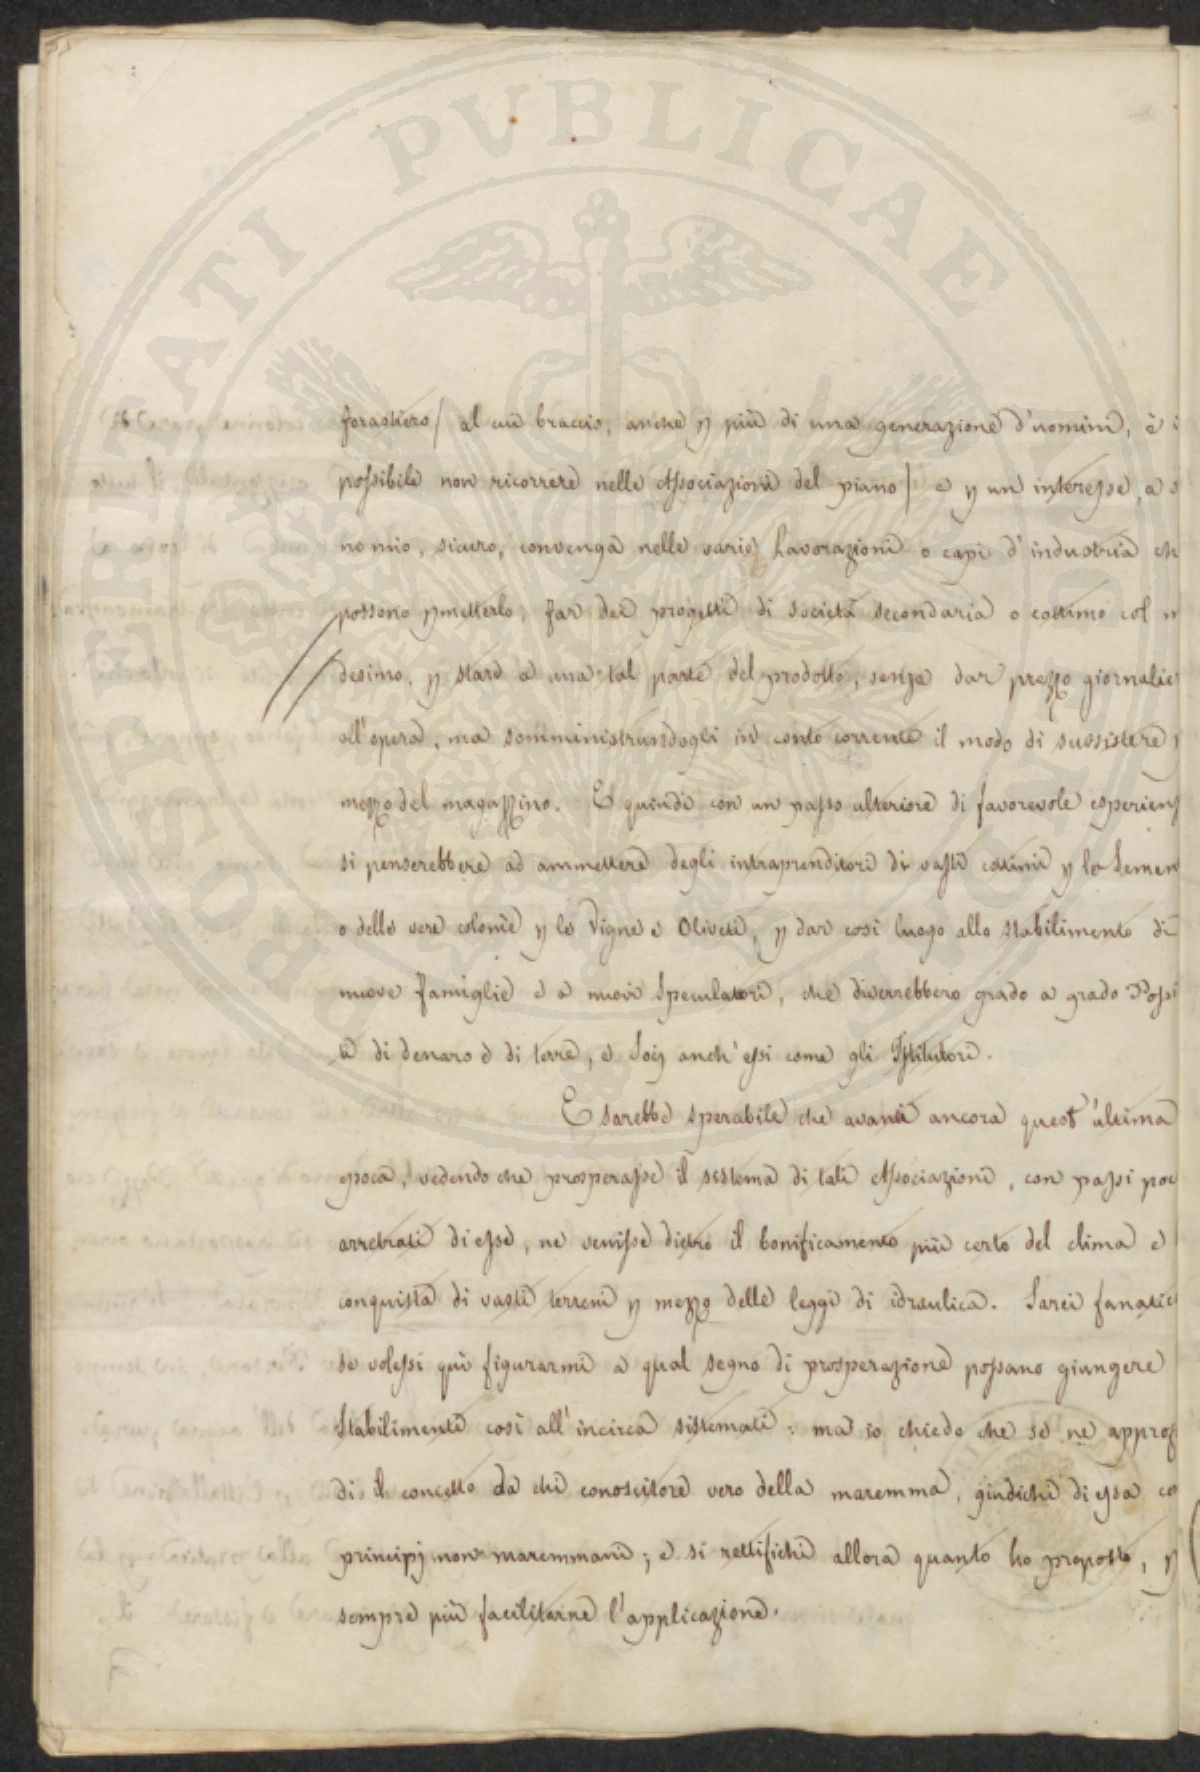 PROSPERITATI PUBLICAE
forastiero/ al cui braccio, anche p più di una generazione d'uomini, è i
possibile non ricorrere nelle Associazioni del piano/ e p un interesse, a s
no mio, sicuro, convenga nelle varie Lavorazioni o capi d'industria ch
possono pmetterlo, far dei progetti di società secondaria o cottimo col m
desimo, p stare a una tal parte del prodotto, senza dar prezzo giornalie
all'opera, ma somministrandogli in conto corrente il modo di sussistere p
mezzo del magazzino. E quindi con un passo ulteriore di favorevole esperienz
si penserebbe ad ammettere degli intraprenditori di vasti cottimi p la Semen
o delle vere colonie p le Vigne e Oliveti, p dar così luogo allo stabilimento di
nuove famiglie e a nuovi Speculatori, che diverrebbero grado a grado Possi
ti di denaro e di terre, e Socj anch'essi come gli Istitutori.
E sarebbe sperabile che avanti ancora quest'ultima
epoca, vedendo che prosperasse il sistema di tali Associazioni, con passi poc
arretrati di esse, ne venisse dietro il bonificamento più certo del clima e
conquista di vasti terreni p mezzo delle leggi di idraulica. Sarei fanatic
se volessi quì figurarmi a qual segno di prosperazione possano giungere
Stabilimenti così all'incirca sistemati: ma io chiedo che se ne approf
di il concetto da chi conoscitore vero della maremma, giudichi di essa co
principj non maremmani; e si rettifichi allora quanto ho proposto, p
sempre più facilitarne l'applicazione.